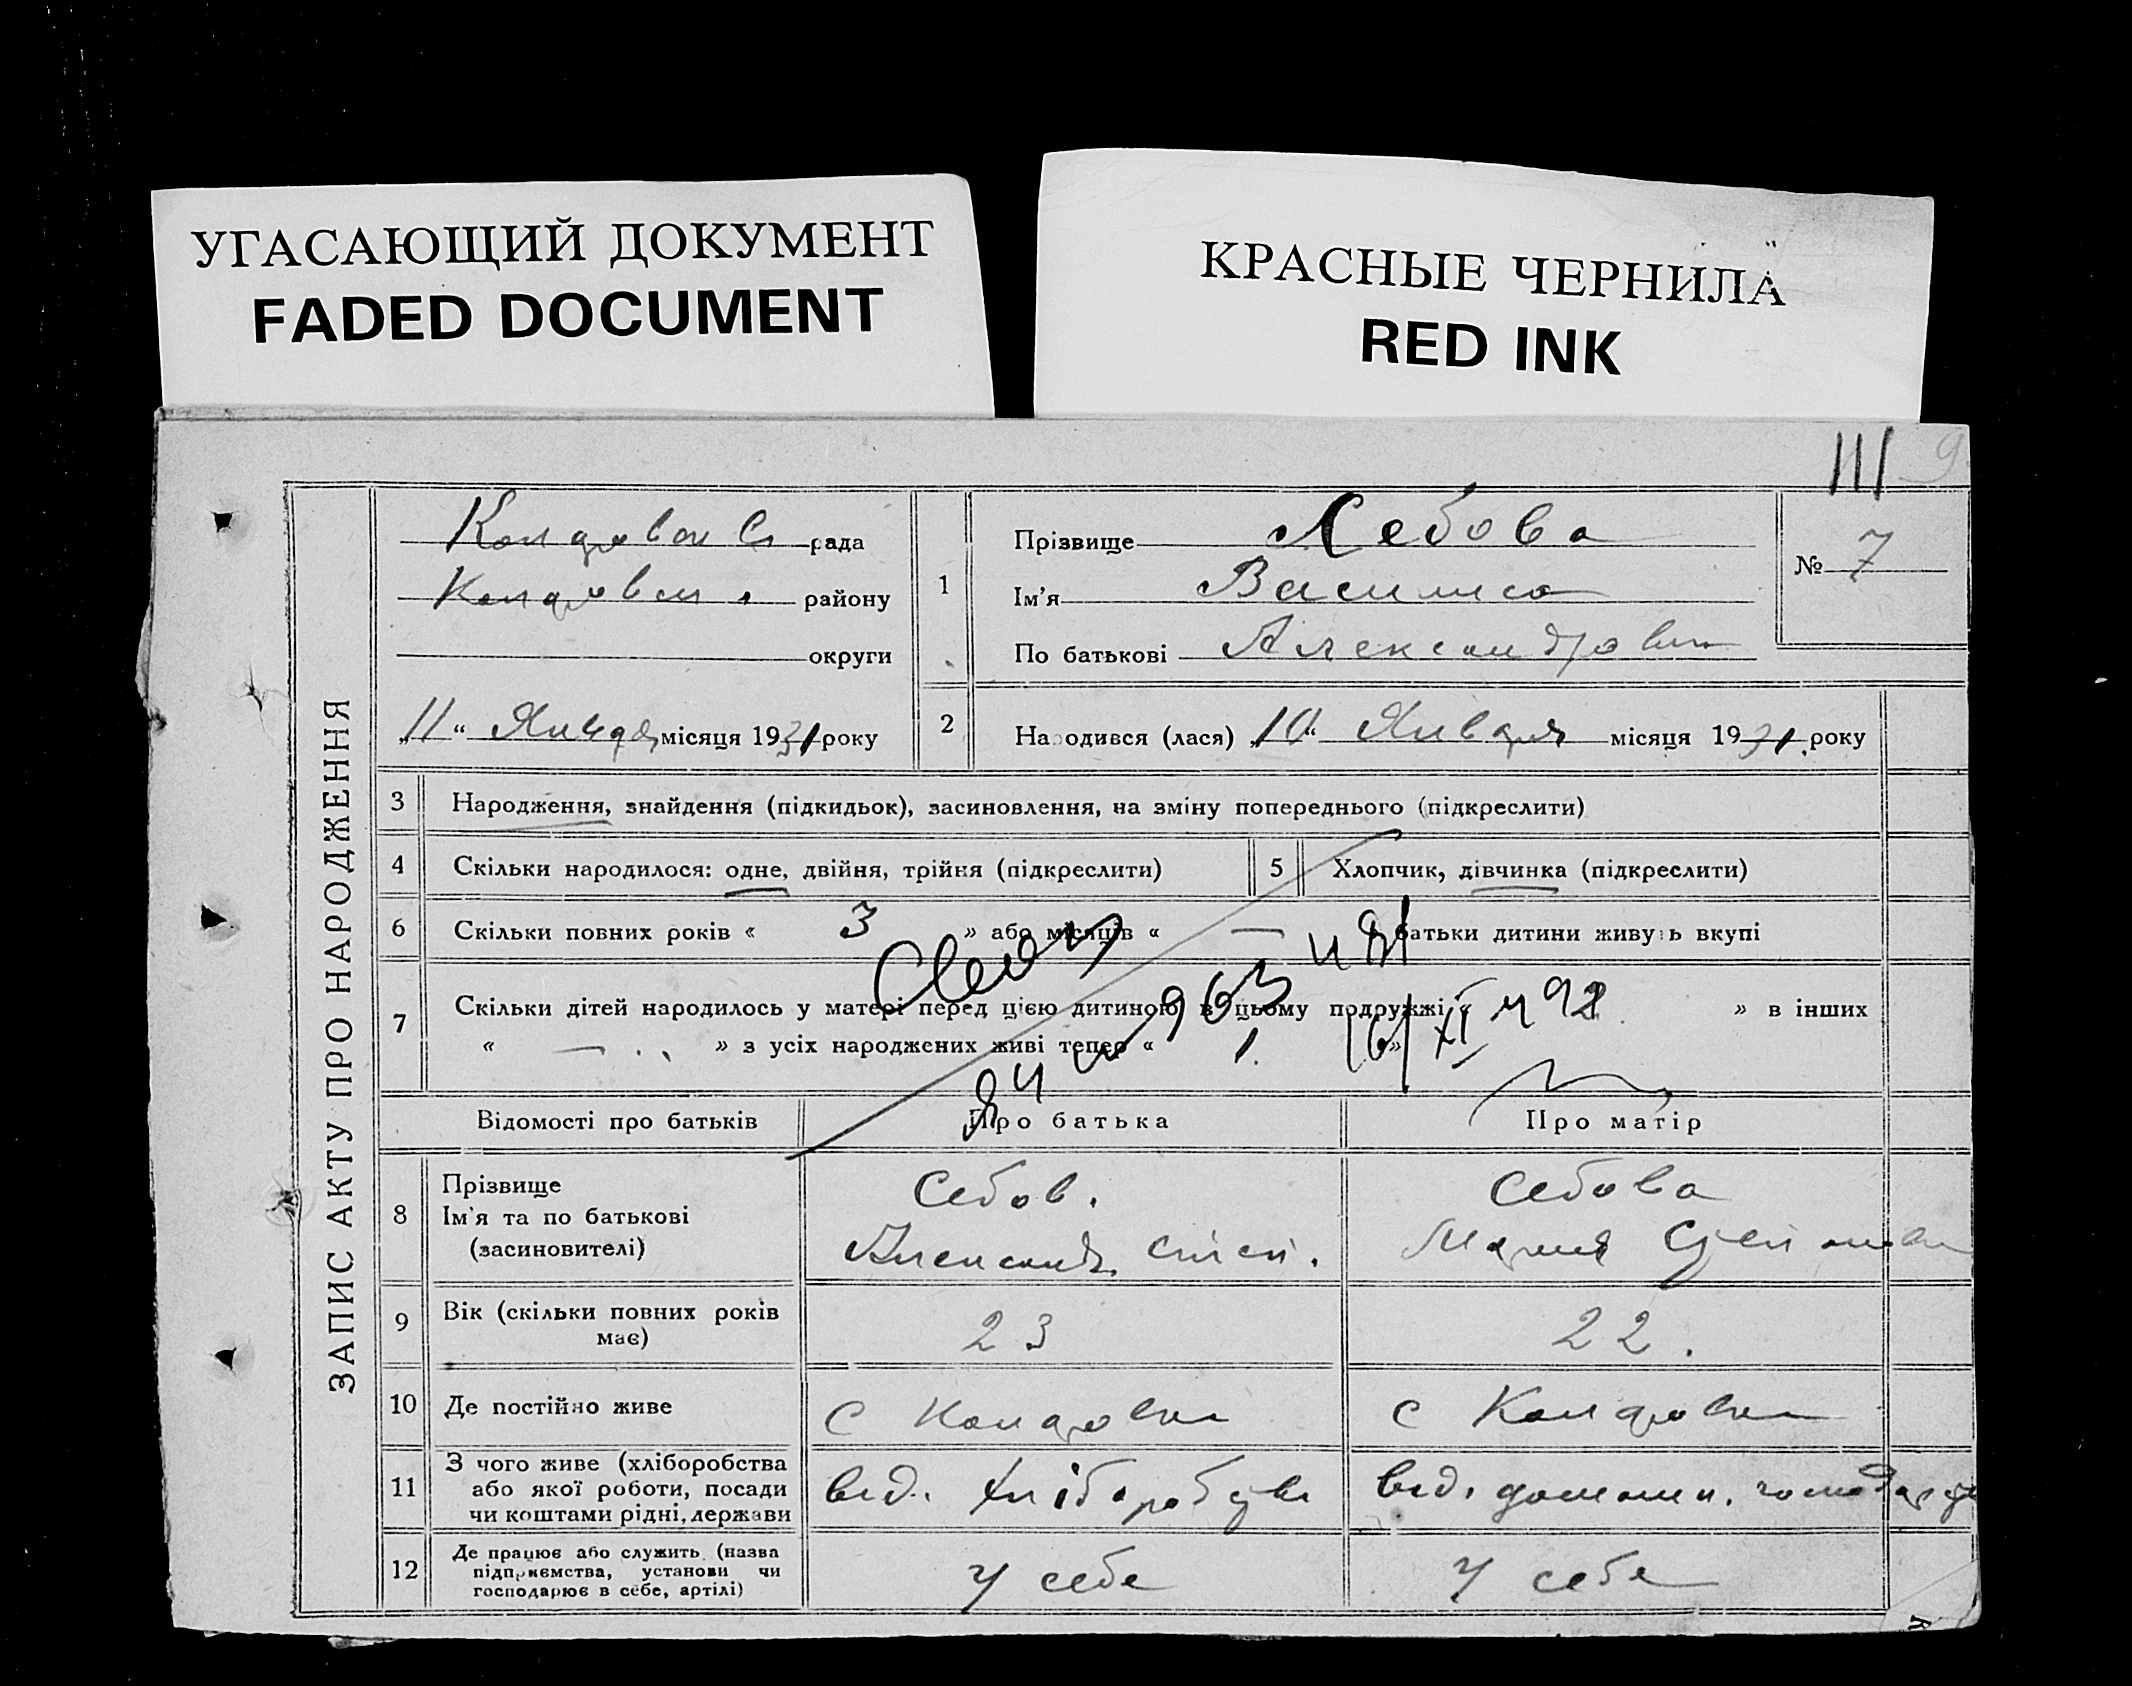 УГАСАЮЩИЙ ДОКУМЕНТ
FADED DOCUMENT
КРАСНЫЕ ЧЕРНИЛА
RED INK
III 9
ЗАПИС АКТУ ПРО НАРОДЖЕННЯ
рада
району
округи
„11“ Января місяця 1931 року
1
Прізвище
Ім'я Василиса
По батькові Александровна
№ 7
2 Народився (лася) „10“ Января місяця 1931 року
3 Народження, знайдення (підкидьок), засиновлення, на зміну попереднього (підкреслити)
4 Скільки народилося: одне, двійня, трійня (підкреслити)
5 Хлопчик, дівчинка (підкреслити)
6 Скільки повних років « 3 » або місяців « — батьки дитини живуть вкупі
7 Скільки дітей народилось у матері перед цією дитиною в цьому подружжі « » в інших
« — » з усіх народжених живі тепер « 1 »
Відомості про батьків
Про батька
Про матір
8 Прізвище
Ім'я та по батькові
(засиновителі)
Себов.
Себова
Мария
9 Вік (скільки повних років має)
23
22.
10 Де постійно живе
с
с
11 З чого живе (хліборобства
або якої роботи, посади
чи коштами рідні, держави
від.
від.
12 Де працює або служить (назва
підприємства, установи чи
господарює в себе, артілі)
У себе
У себе